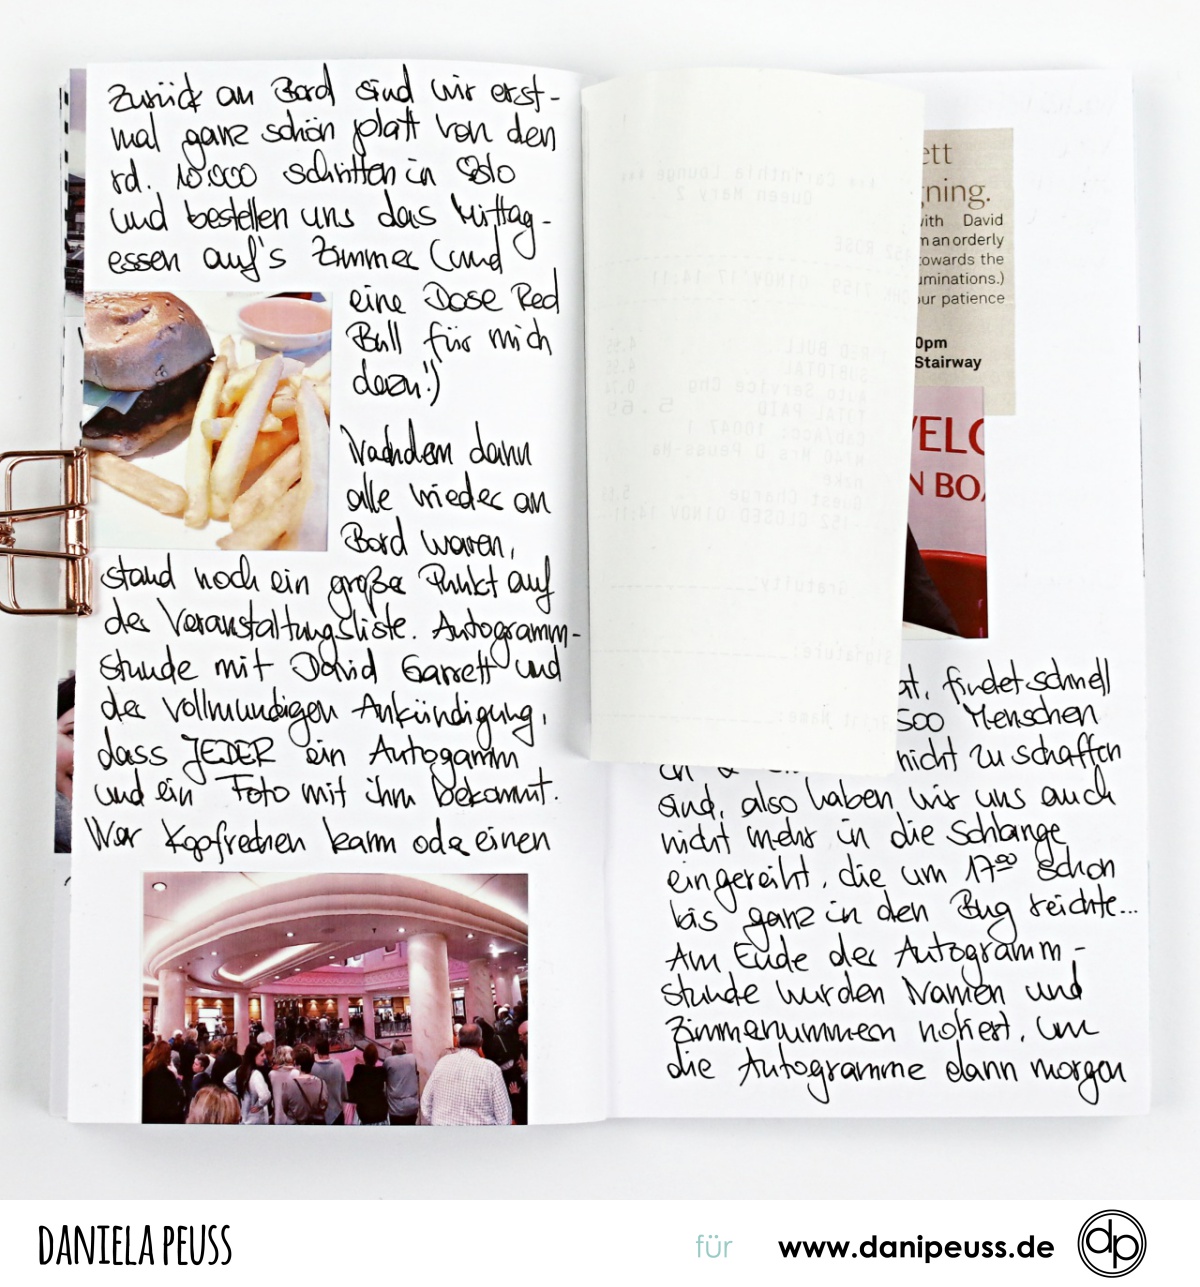 Zurück an Bord sind wir erst-
mal ganz schön platt von den
rd. 10.000 Schritten in Oslo
und bestellen uns das Mittag-
essen auf's Zimmer (und
eine Dose Red
Bull für mich
dazu!)
Nachdem dann
alle wieder an
Bord waren,
stand noch ein große Punkt auf
der Veranstaltungsliste. Autogramm-
stunde mit David Garrett und
der vollmundigen Ankündigung,
dass JEDER ein Autogamm
und ein Foto mit ihm bekommt.
Wer Kopfrechnen kann oder einen
*** Carinthia Lounge ***
Queen Mary 2
152 ROSE
CHK 7159 01NOV'17 14:11
RED BULL 4.95
SUBTOTAL 4.95
Auto Service Chg 0.74
TOTAL PAID 5.69
Cab/Acct 10047 1
Name Mrs D Peuss-Ha
nake
Guest Charge 5.69
152 CLOSED 01NOV 14:11
Gratuity:
Signature:
Print Name:
ett
ning.
with David
m an orderly
towards the
uminations.)
our patience
0pm
Stairway
VELC
N BOA
at, findet schnell
500 Menschen
nicht zu schaffen
sind, also haben wir uns auch
nicht mehr in die Schlange
eingereiht, die um 17⁰⁰ schon
bis ganz in den Bug reichte...
Am Ende der Autogramm-
stunde wurden Namen und
Zimmernummern notiert, um
die Autogramme dann morgen
DANIELA PEUSS
für www.danipeuss.de dp